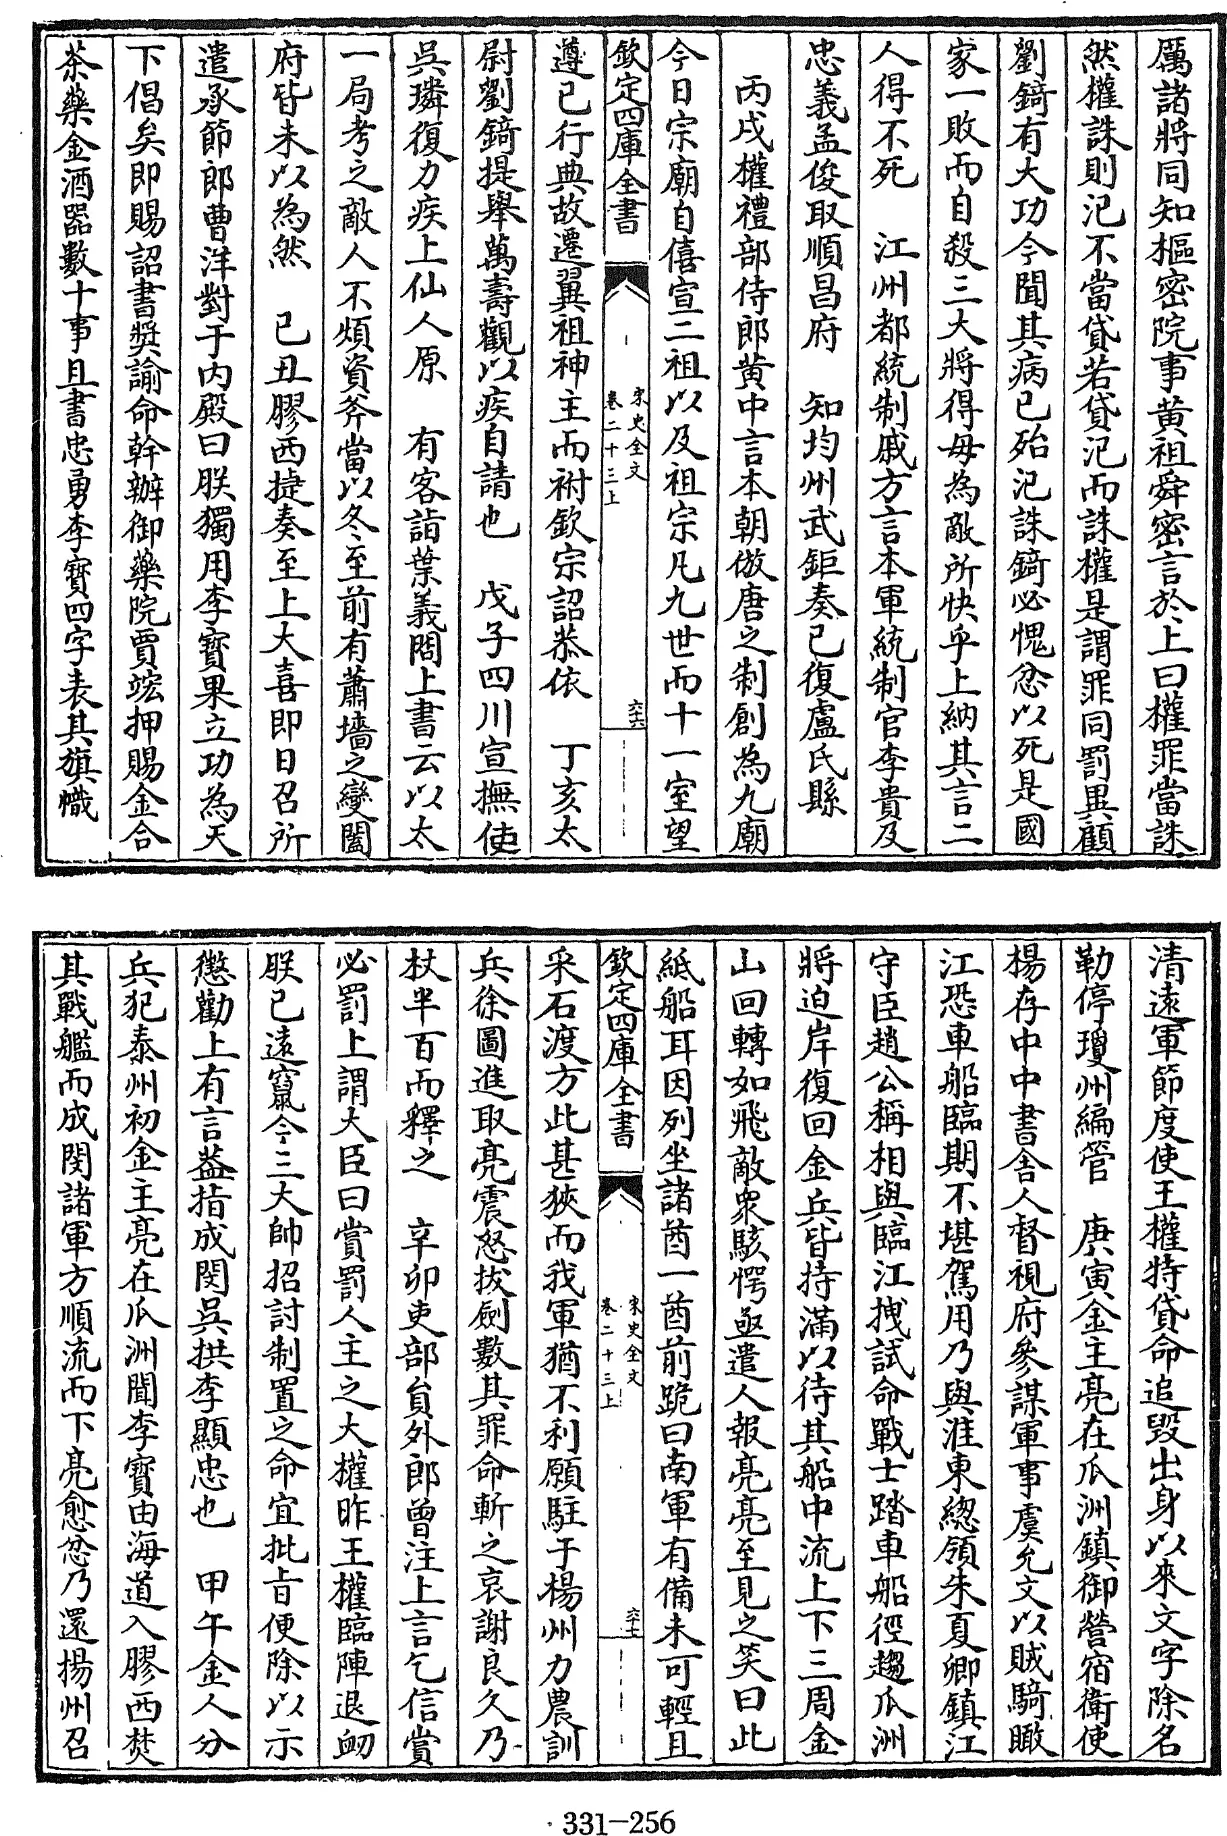 厲諸將同知樞密院事黄祖舜密言於上曰權罪當誅
然權誅則汜不當貸若貸汜而誅權是謂罪同罰異顧
劉錡有大功今聞其病已殆汜誅錡必愧忿以死是國
家一敗而自殺三大將得毋為敵所快乎上納其言二
人得不死　江州都統制戚方言本軍統制官李貴及
忠義孟俊取順昌府　知均州武鉅奏已復盧氏縣
丙戌權禮部侍郎黄中言本朝倣唐之制創為九廟
今日宗廟自僖宣二祖以及祖宗凡九世而十一室望
欽定四庫全書
宋史全文
卷二十三上
六十六
遵已行典故遷翼祖神主而祔欽宗詔恭依　丁亥太
尉劉錡提舉萬壽觀以疾自請也　戊子四川宣撫使
吳璘復力疾上仙人原　有客詣葉義問上書云以太
一局考之敵人不煩資斧當以冬至前有蕭墻之變闔
府皆未以為然　己丑膠西捷奏至上大喜即日召所
遣承節郎曹洋對于内殿曰朕獨用李寳果立功為天
下倡矣即賜詔書奬諭命幹辦御藥院賈竑押賜金合
茶藥金酒器數十事且書忠勇李寳四字表其旗幟
清遠軍節度使王權特貸命追毀出身以來文字除名
勒停瓊州編管　庚寅金主亮在瓜洲鎮御營宿衛使
楊存中中書舎人督視府參謀軍事虞允文以賊騎瞰
江恐車船臨期不堪駕用乃與淮東總領朱夏卿鎮江
守臣趙公稱相與臨江拽試命戰士踏車船徑趨瓜洲
將迫岸復回金兵皆持滿以待其船中流上下三周金
山回轉如飛敵衆駭愕亟遣人報亮亮至見之笑曰此
紙船耳因列坐諸酋一酋前跪曰南軍有備未可輕且
欽定四庫全書
宋史全文
卷二十三上
六十七
采石渡方此甚狹而我軍猶不利願駐于楊州力農訓
兵徐圖進取亮震怒拔劍數其罪命斬之哀謝良久乃
杖半百而釋之　辛卯吏部員外郎曾汪上言乞信賞
必罰上謂大臣曰賞罰人主之大權昨王權臨陣退衂
朕已遠竄今三大帥招討制置之命宜批旨便除以示
懲勸上有言葢指成閔吳拱李顯忠也　甲午金人分
兵犯泰州初金主亮在瓜洲聞李寳由海道入膠西焚
其戰艦而成閔諸軍方順流而下亮愈忿乃還揚州召
331-256